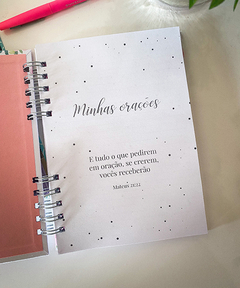 Minhas orações
E tudo o que pedirem
em oração, se crerem,
vocês receberão
Mateus 21:22